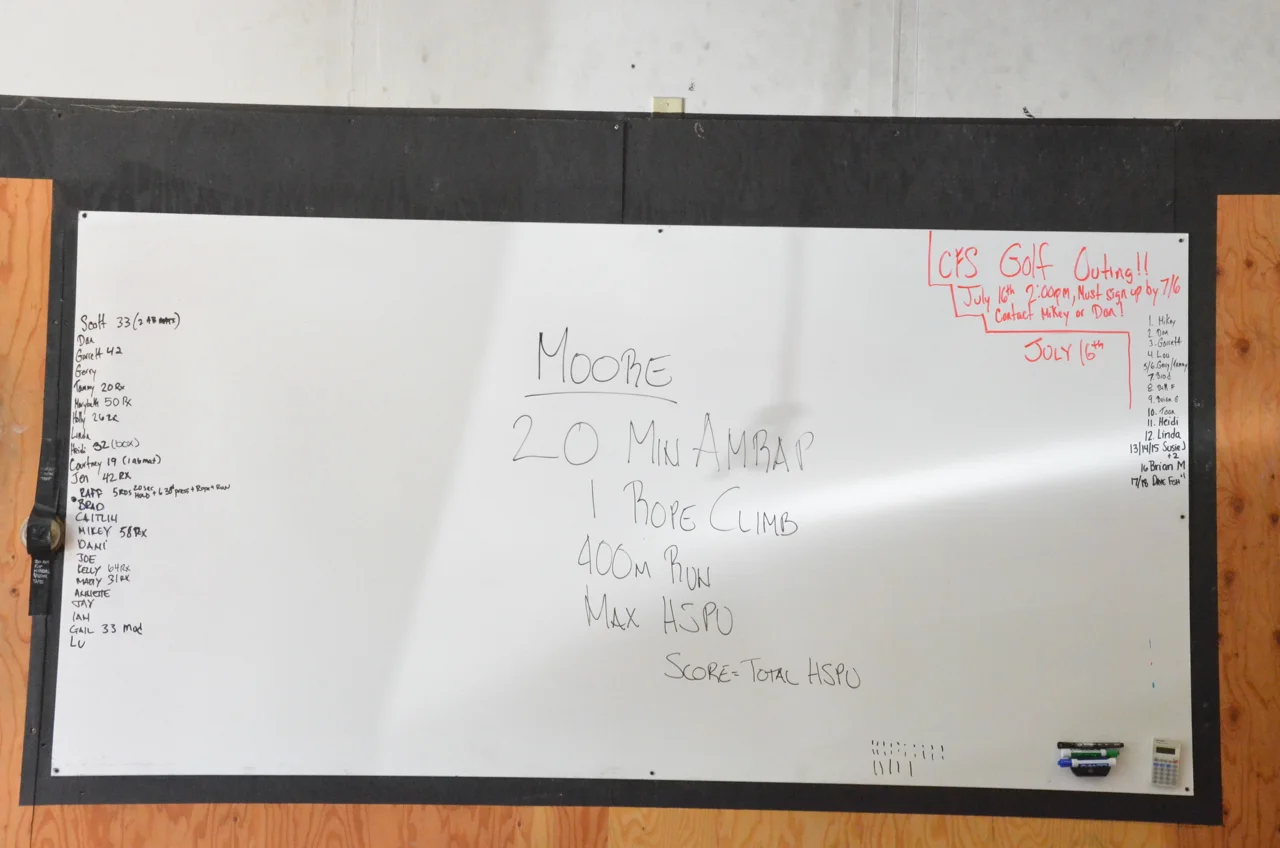 Scott 33 (2 AB mats)
Dan
Garrett 42
Gerry
Tammy 20 Rx
Marybeth 50 Rx
Holly 26 Rx
Linda
Heidi 32 (box)
Courtney 19 (1 abmat)
Jen 42 RX
RAPP 5 RDS 20 sec HOLD + 6 30# press + Rope + Run
BRAD
CAITLIN
MIKEY 58 RX
DANI
JOE
KELLY 64 Rx
MARTY 31 RX
ANNETTE
JAY
IAN
GAIL 33 Mod
LU
MOORE
20 MIN AMRAP
1 ROPE CLIMB
400M RUN
MAX HSPU
SCORE=TOTAL HSPU
CFS Golf Outing!!
July 16th 2:00pm, Must sign up by 7/6
Contact Mikey or Dan!
JULY 16th
1. Mikey
2. Dan
3. Garrett
4. Lou
5/6. Gerry/Tammy
7. Brad
8. Jeff F
9. Brian
10. Tean
11. Heidi
12. Linda
13/14/15 Susie J
+2
16 Brian M
17/18